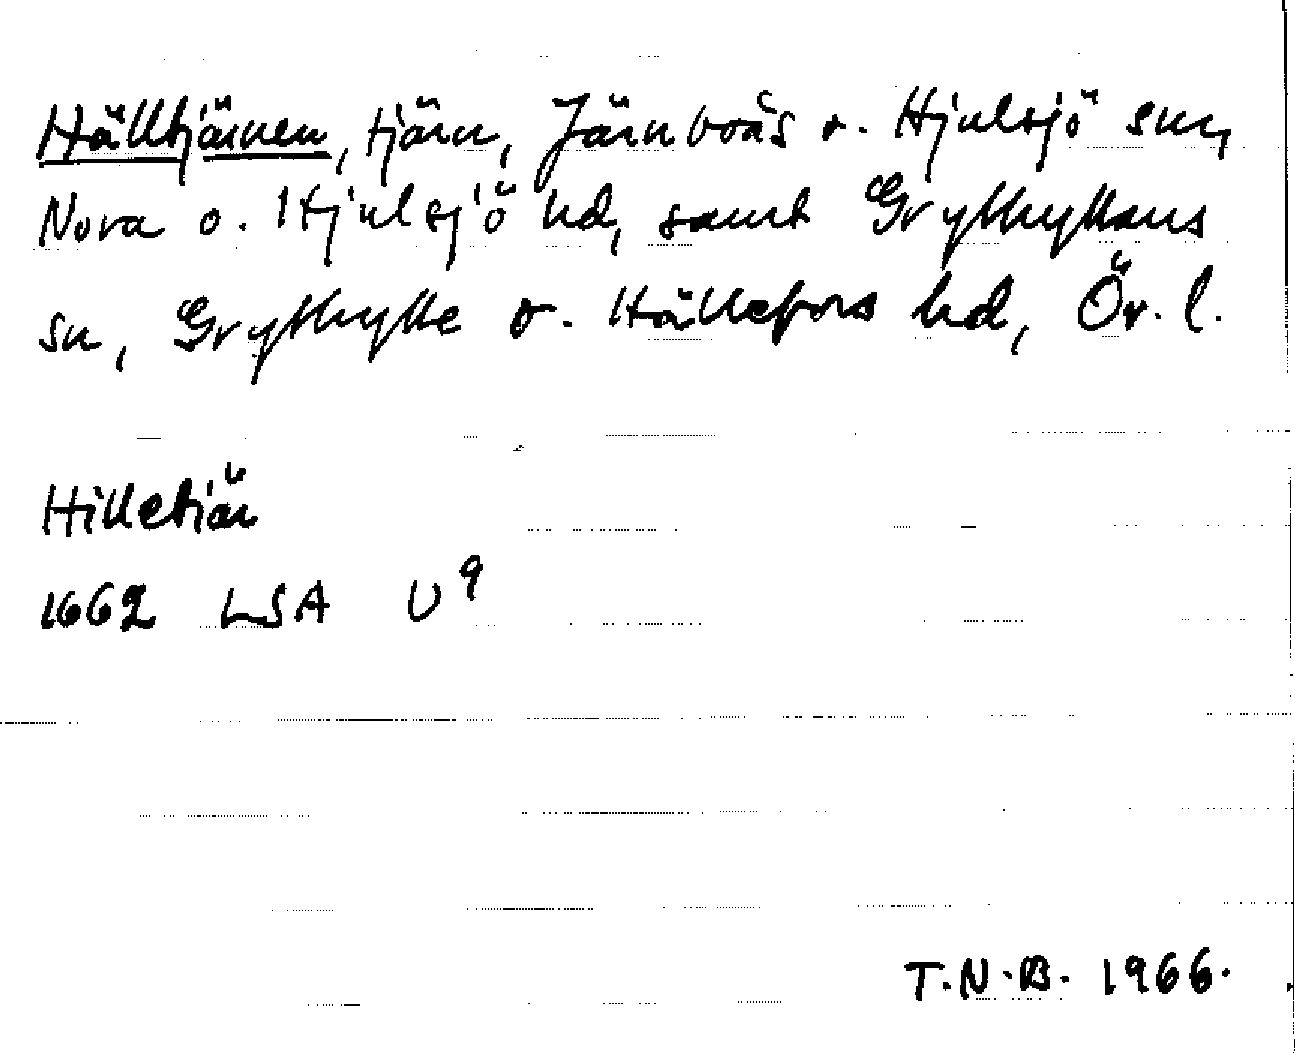 Hälltjärnen, tjärn, Järnboås o. Hjulsjö snr,
Nora o. Hjulsjö hd, samt Grythyttans
sn, Grythytte o. Hällefors hd, Ör. l.
Hilletiär
1662 LSA U9
T.N.B. 1966.